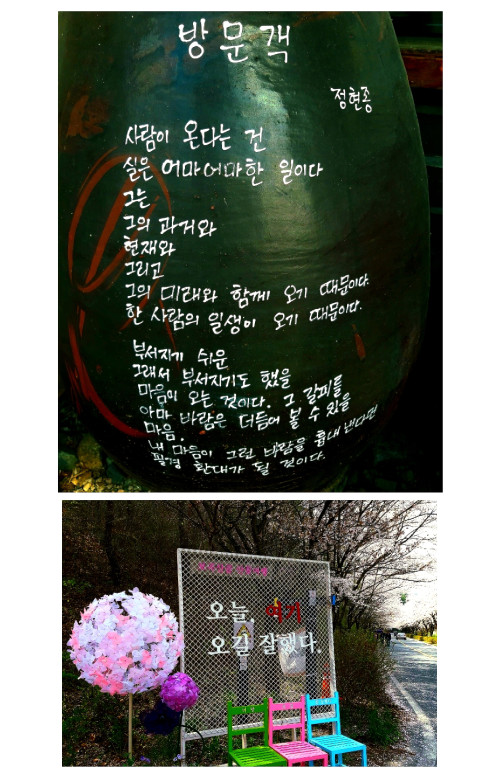 방문객
정현종
사람이 온다는 건
실은 어마어마한 일이다
그는
그의 과거와
현재와
그리고
그의 미래와 함께 오기 때문이다.
한 사람의 일생이 오기 때문이다.
부서지기 쉬운
그래서 부서지기도 했을
마음이 오는 것이다. 그 갈피를
아마 바람은 더듬어 볼 수 있을
마음,
내 마음이 그런 바람을 흉내 낸다면
필경 환대가 될 것이다.
오늘, 여기
오길 잘했다.